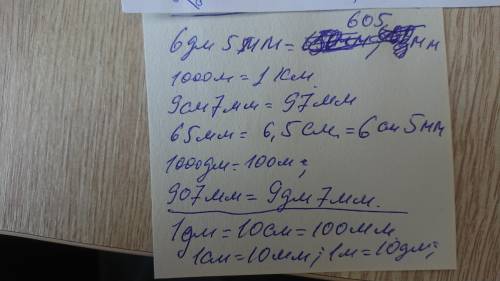 605
6дм 5мм = мм
1000м = 1 км
9см 7мм = 97мм
65мм = 6,5см = 6см 5мм
1000дм = 100м;
907мм = 9дм 7мм.
1дм = 10см = 100мм
1см = 10мм; 1м = 10дм;